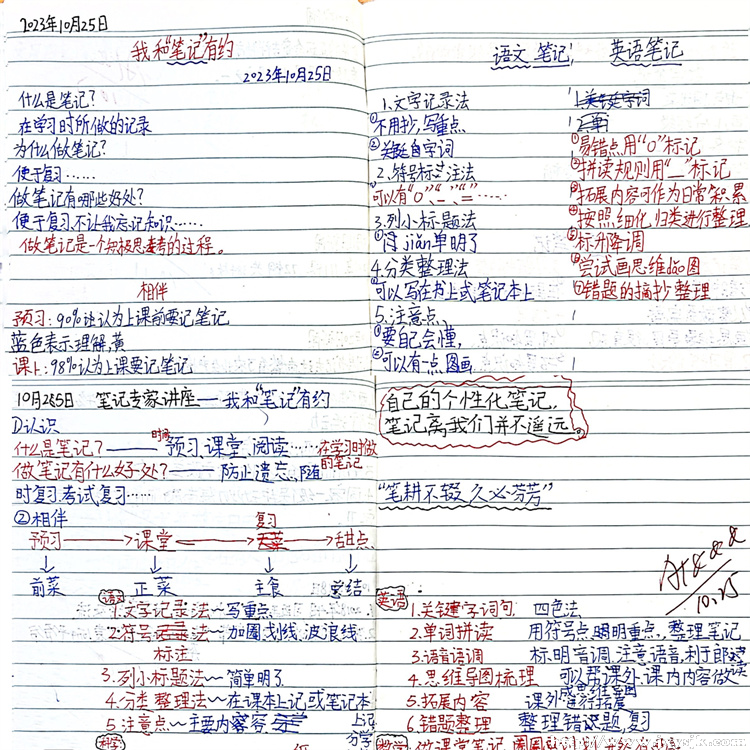 2023年10月25日
我和“笔记”有约
2023年10月25日
什么是笔记?
在学习时所做的记录
为什么做笔记?
便于复习……
做笔记有哪些好处?
便于复习不让我忘记知识……
做笔记是一个积极思考的过程。
相伴
预习:90%让认为上课前要记笔记
蓝色表示理解,黄
课上:98%认为上课要记笔记
语文笔记, 英语笔记
1.文字记录法
①不用抄,写重点
②关键自字词
2.符号标注法
可以有“O”、“_”、“=”……
3.列小标题法
①简jiǎn单明了
4.分类整理法
①可以写在书上式,笔记本上
5.注意点,
①要自己会懂,
②可以有一点图画
1.关键字词
2.单
①易错点用“O”标记
②拼读规则用“_”标记
③拓展内容可作为日常积累
④按照细化,归类进行整理
⑤标升降调
⑥尝试画思维导图
⑦错题的摘抄整理
10月25日 笔记专家讲座——我和“笔记”有约
①认识
什么是笔记?——时候 预习、课堂、阅读……在学习时做的笔记
做笔记有什么好处?——防止遗忘、随
时复习.考试复习……
②相伴
复习
预习→课堂→→甜点
↓ ↓ ↓ ↓
前菜 正菜 主食 总结
语文
1.文字记录法~写重点
2.符号标注~加圈划线,波浪线
3.列小标题法~简单明了
4.分类整理法~在课本上记或笔记本
5.注意点~主要内容
上记
科学
自己的个性化笔记,
笔记离我们并不遥远。
“笔耕不辍 久必芬芳”
A+&&&
10.25
英语
1.关键字词句 四色法
2.单词拼读 用符号点明重点,整理笔记
3.语音语调 标明音调.注意语音,利于郎读
4.思维导图梳理 可以帮课外、课内内容做
成思维导图
5.拓展内容 课外进行拓展
6.错题整理 整理错题,复习
数学 做课堂笔记